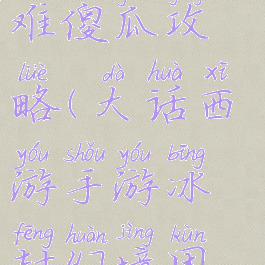 难傻瓜攻
lüè dà huà xī
略(大话西
yóu shǒu yóu bīng
游手游冰
fēng huàn jìng kùn
封幻境困